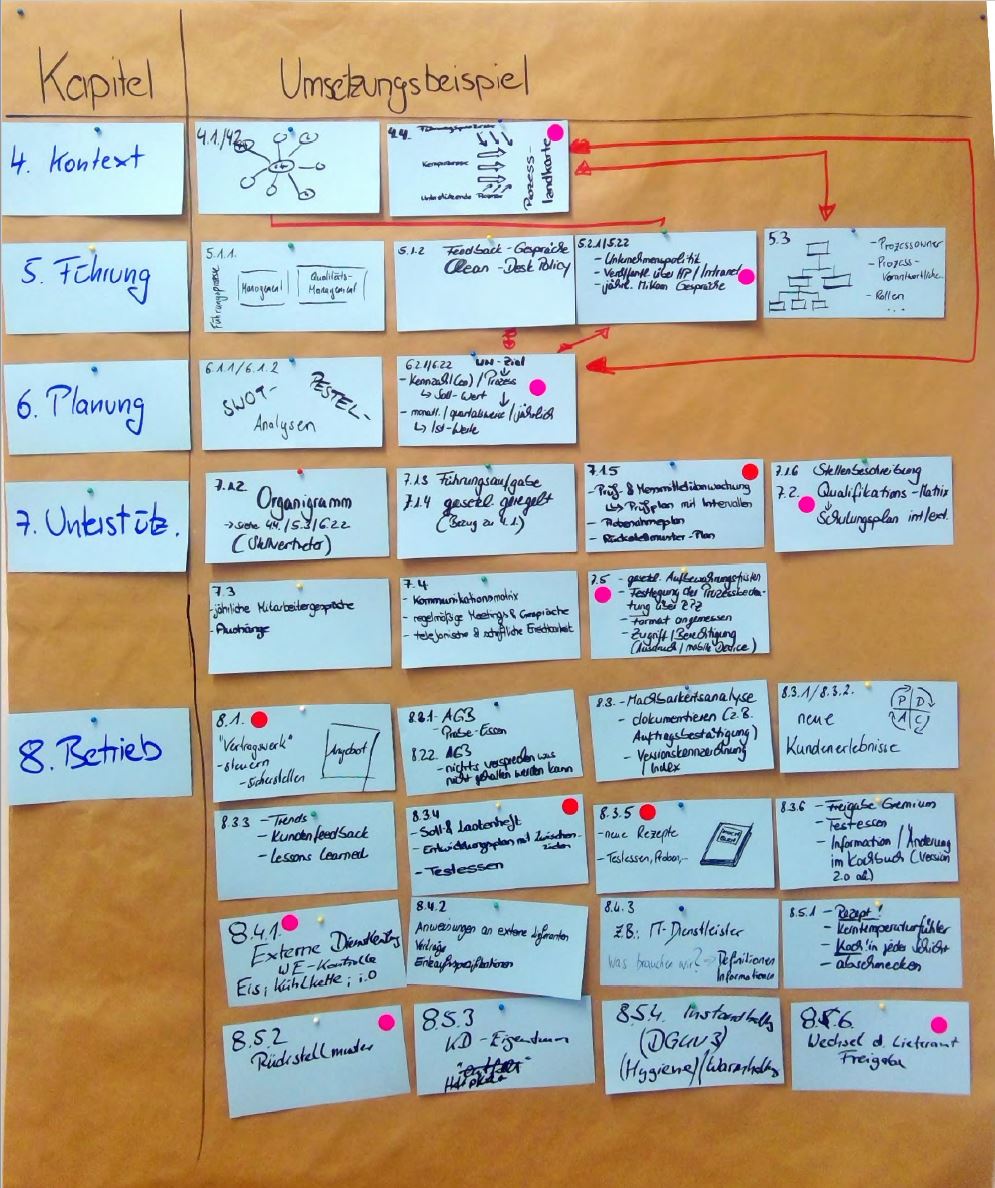 Kapitel
Umsetzungsbeispiel
4. Kontext
4.1/4.2
4.4.
Führungsprozesse
Kernprozesse
Unterstützende Prozesse
Prozess-
landkarte
5. Führung
5.1.1.
Führungsprozesse
Management
Qualitäts-
Management
5.1.2 Feedback-Gespräche
Clean-Desk Policy
5.2.1/5.2.2
- Unternehmenspolitik
- Veröffentl. über HP/Intranet
- jährl. Gespräche
5.3
- Prozessowner
- Prozess-
verantwortliche
- Rollen
...
6. Planung
6.1.1/6.1.2
SWOT-
PESTEL-
Analysen
6.2.1/6.2.2 UN-Ziel
- Kennzahl(en)/Prozess
↳ Soll-Wert
- monatl./quartalsweise/jährlich
↳ Ist-Werte
7. Unterstütz.
7.1.2
Organigramm
→ siehe 4.4./5.3/6.2.2
(Stellvertreter)
7.1.3 Führungsaufgabe
7.1.4 gesetzl. geregelt
(Bezug zu 4.1.)
7.1.5
- Prüf- & Messmittelüberwachung
↳ Prüfplan mit Intervallen
- Probenahmeplan
- Rückstellmuster-Plan
7.1.6 Stellenbeschreibung
7.2. Qualifikations-Matrix
Schulungsplan int/ext.
7.3
- jährliche Mitarbeitergespräche
- Aushänge
7.4
- Kommunikationsmatrix
- regelmäßige Meetings & Gespräche
- telefonische & schriftliche Erreichbarkeit
7.5 - gesetzl. Aufbewahrungsfristen
- Festlegung der
über
- Format angemessen
- Zugriff/Berechtigung
(Ausdruck/mobile Device)
8. Betrieb
8.1.
"Vertragswerk"
- steuern
- sicherstellen
Angebot
8.2.1 - AGB
Probe-Essen
8.2.2. AGB
- nichts versprechen was
nicht gehalten werden kann
8.3. - Machbarkeitsanalyse
- dokumentieren (z.B.
Auftragsbestätigung)
- Versionskennzeichnung
/Index
8.3.1/8.3.2.
neue
Kundenerlebnisse
P D
A C
8.3.3 - Trends
- Kundenfeedback
- Lessons Learned
8.3.4
- Soll- & Lastenheft
- Entwicklungsplan mit Zwischen-
zielen
- Testessen
8.3.5
- neue Rezepte
- Testessen, Proben,..
8.3.6 - Freigabe Gremium
- Testessen
- Information/Änderung
im Kochbuch (Version
2.0 etc)
8.4.1.
Externe Dienstleistg
WE-Kontrolle
Eis; Kühlkette; i.O
8.4.2
Anweisungen an externe Lieferanten
Verträge
Einkaufsspezifikationen
8.4.3
ZB.: IT-Dienstleister
Was brauchen wir? → Definitionen
Informationen
8.5.1 - Rezept!
- Kerntemperaturfühler
- Koch in jeder Schicht
- abschmecken
8.5.2
Rückstellmuster
8.5.3
KD-Eigentum
8.5.4. Instandhaltg
(DGUV3)
(Hygiene)/Warmhaltg
8.5.6.
Wechsel d. Lieferant
Freigabe